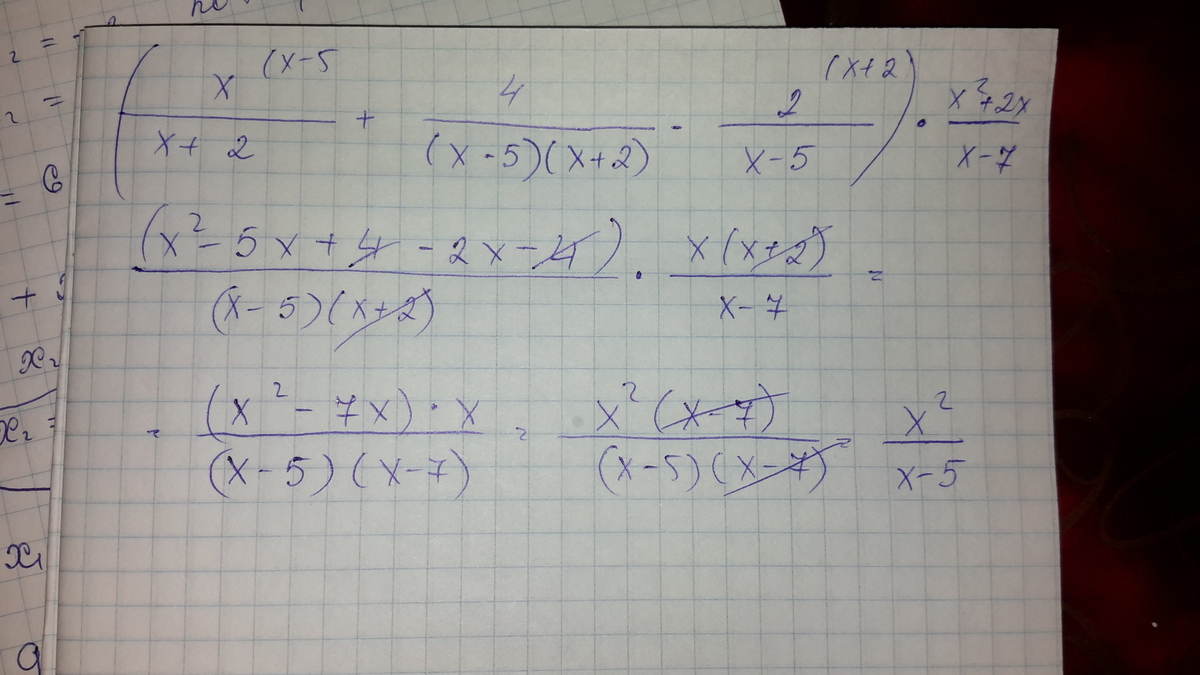 (x^(x-5 / x+2 + 4 / (x-5)(x+2) - 2^(x+2) / x-5) · x²+2x / x-7
(x²-5x+4-2x-4) / (x-5)(x+2) · x(x+2) / x-7 =
= (x²-7x)·x / (x-5)(x-7) = x²(x-7) / (x-5)(x-7) = x² / x-5